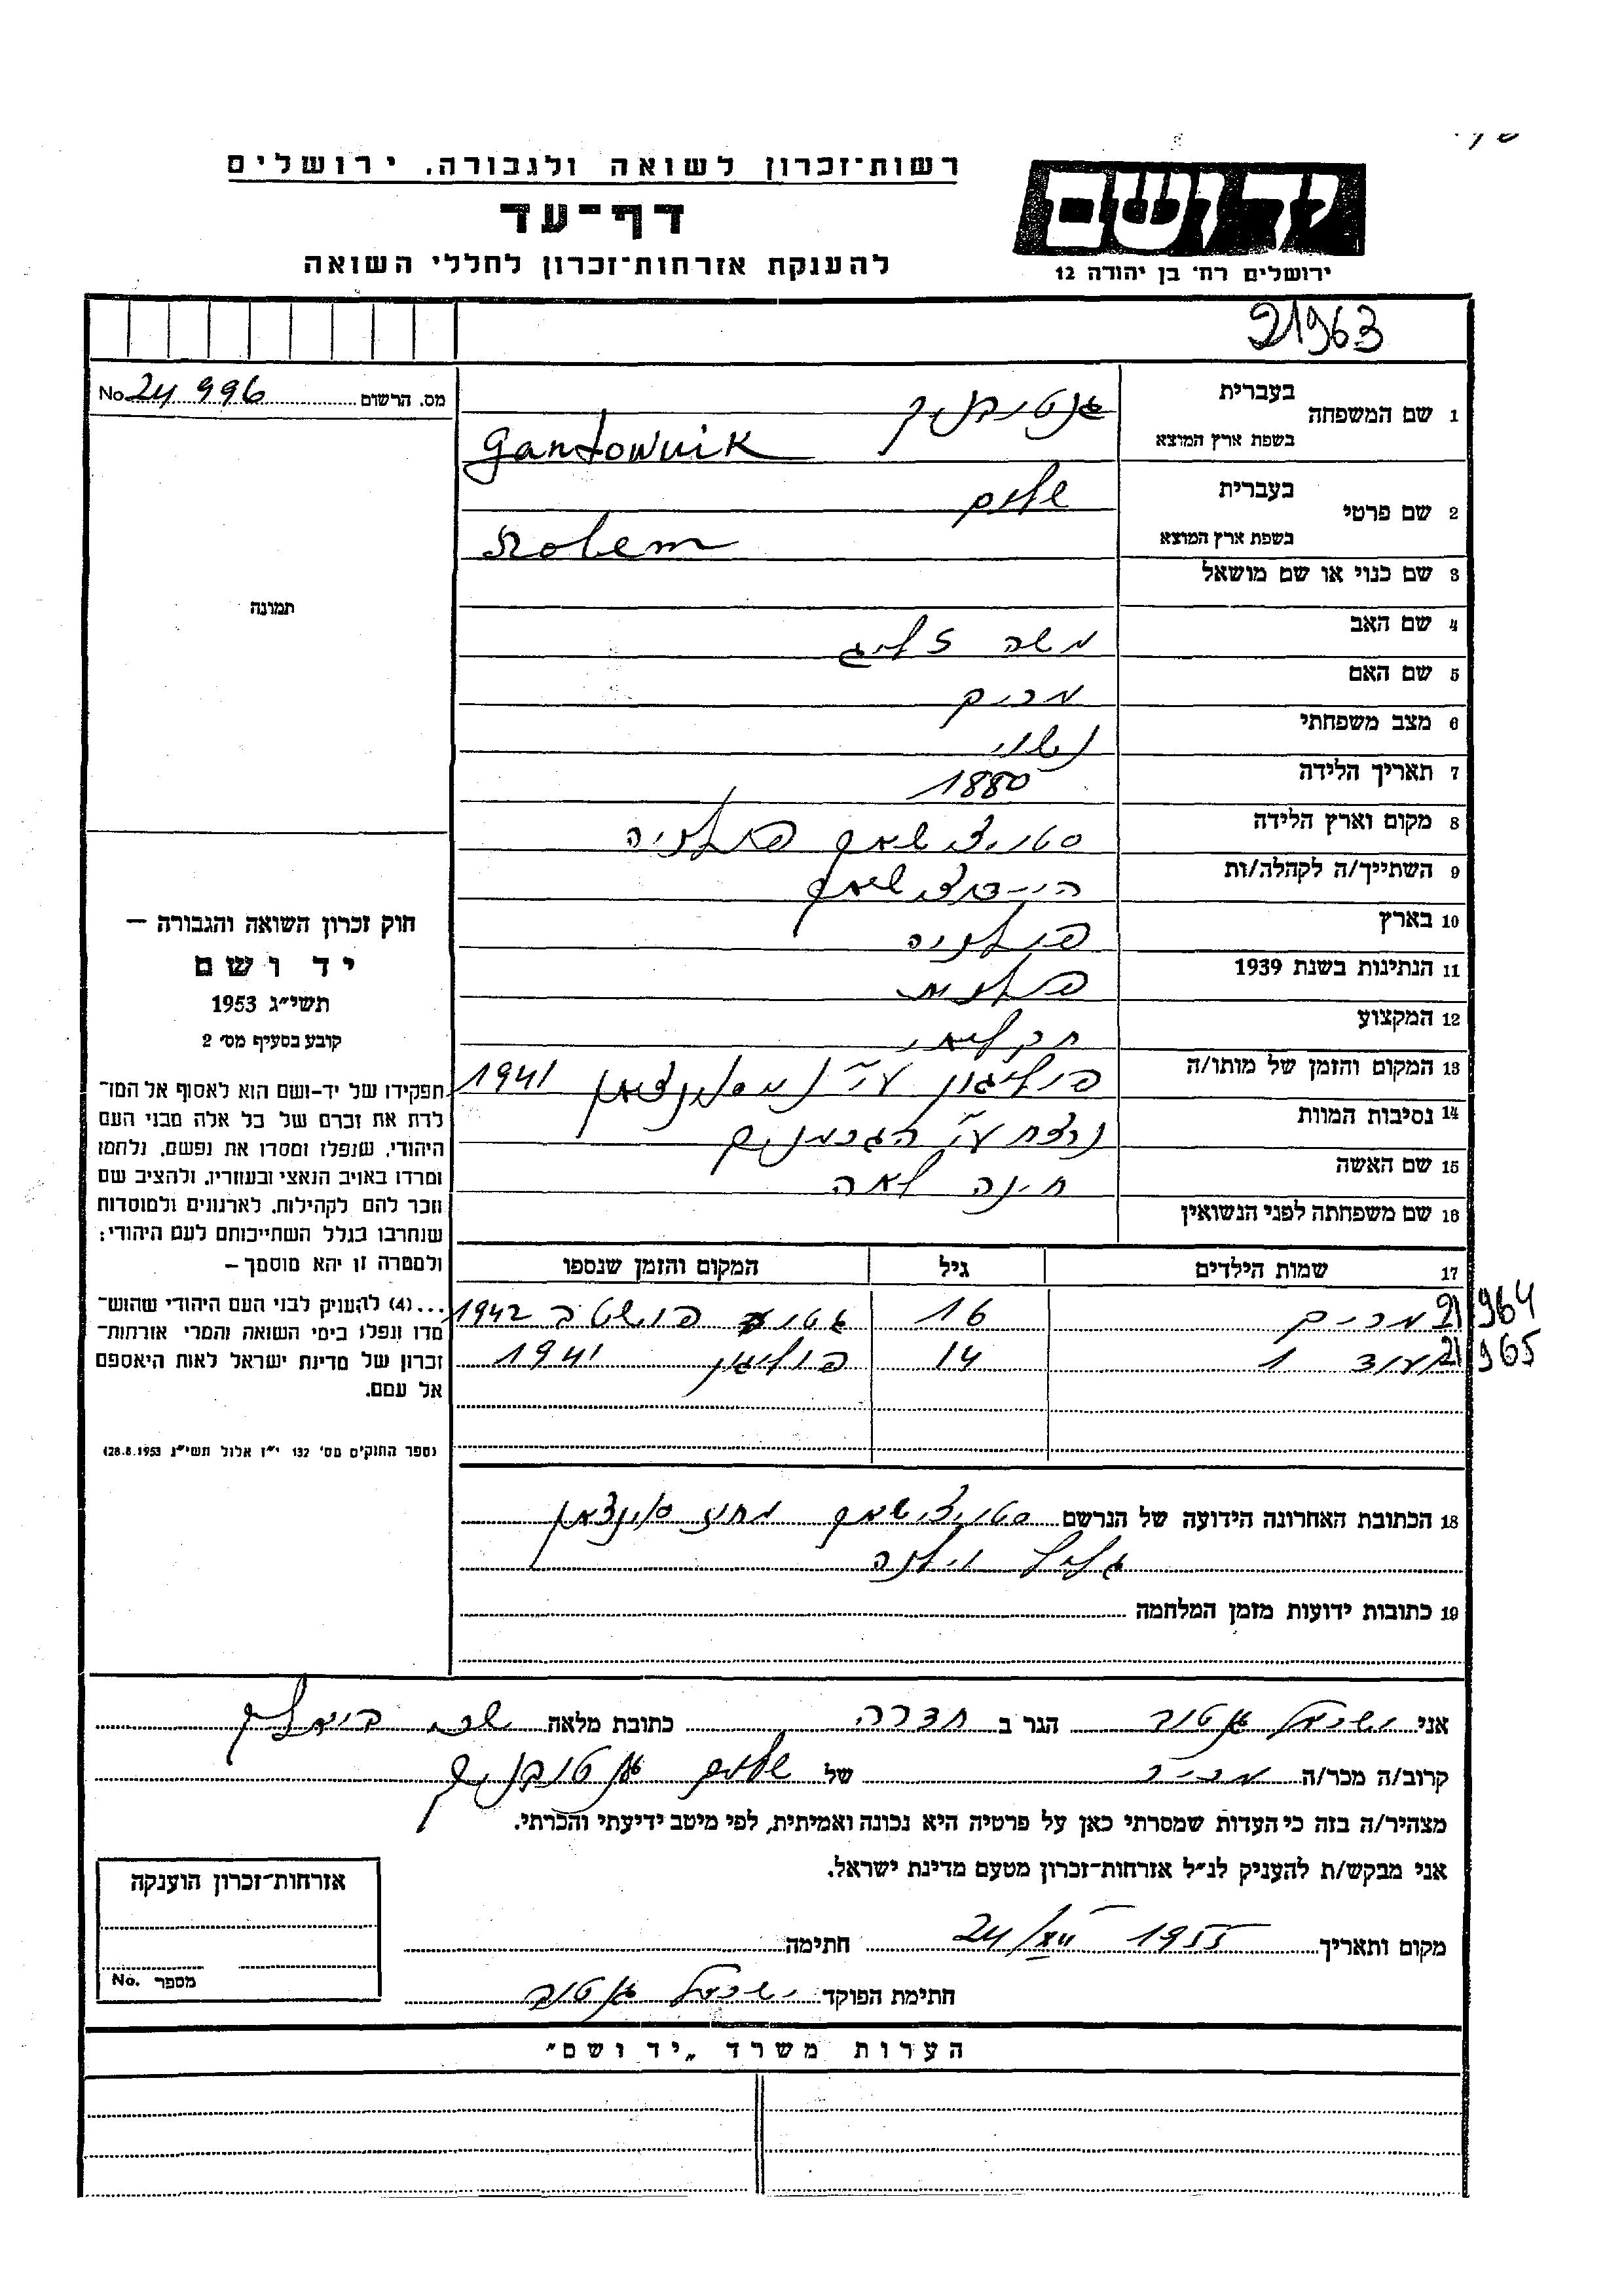 רשות־זכרון לשואה ולגבורה. ירושלים
דף־עד
להענקת אזרחות־זכרון לחללי השואה
יד ושם
ירושלים רח׳ בן יהודה 12
21963
מס. הרשום No 24 996
תמונה
1 שם המשפחה בעברית
בשפת ארץ המוצא Gantownik
2 שם פרטי בעברית שלום
בשפת ארץ המוצא
3 שם כנוי או שם מושאל
4 שם האב משה זליג
5 שם האם מרים
6 מצב משפחתי נשוי
7 תאריך הלידה 1880
8 מקום וארץ הלידה פולניה
9 השתייך/ה לקהלה/ות
10 בארץ פולניה
11 הנתינות בשנת 1939 פולנית
12 המקצוע חקלאי
13 המקום והזמן של מותו/ה פוליגון ע״י 1941
14 נסיבות המוות נרצח ע״י הגרמנים
15 שם האשה חינה לאה
16 שם משפחתה לפני הנשואין
17 שמות הילדים גיל המקום והזמן שנספו
21964 מרים 16 1942
21965 ועוד 1 14 פוליגון 1941
18 הכתובת האחרונה הידועה של הנרשם מחוז
גליל וילנה
19 כתובות ידועות מזמן המלחמה
חוק זכרון השואה והגבורה —
יד ושם
תשי״ג 1953
קובע בסעיף מס׳ 2
תפקידו של יד-ושם הוא לאסוף אל המו־
לדת את זכרם של כל אלה מבני העם
היהודי, שנפלו ומסרו את נפשם, נלחמו
ומרדו באויב הנאצי ובעוזריו, ולהציב שם
וזכר להם לקהילות, לארגונים ולמוסדות
שנחרבו בגלל השתייכותם לעם היהודי;
ולמטרה זו יהא מוסמך —
...(4) להעניק לבני העם היהודי שהוש־
מדו ונפלו בימי השואה והמרי אזרחות־
זכרון של מדינת ישראל לאות היאספם
אל עמם.
(ספר החוקים מס׳ 132 י״ז אלול תשי״ג 28.8.1953)
אני הגר ב חדרה כתובת מלאה
קרוב/ה מכר/ה מכיר של שלום
מצהיר/ה בזה כי העדות שמסרתי כאן על פרטיה היא נכונה ואמיתית, לפי מיטב ידיעתי והכרתי.
אני מבקש/ת להעניק לנ״ל אזרחות־זכרון מטעם מדינת ישראל.
מקום ותאריך 24/XII 1955 חתימה
חתימת הפוקד
אזרחות־זכרון הוענקה
מספר No.
הערות משרד „יד ושם"